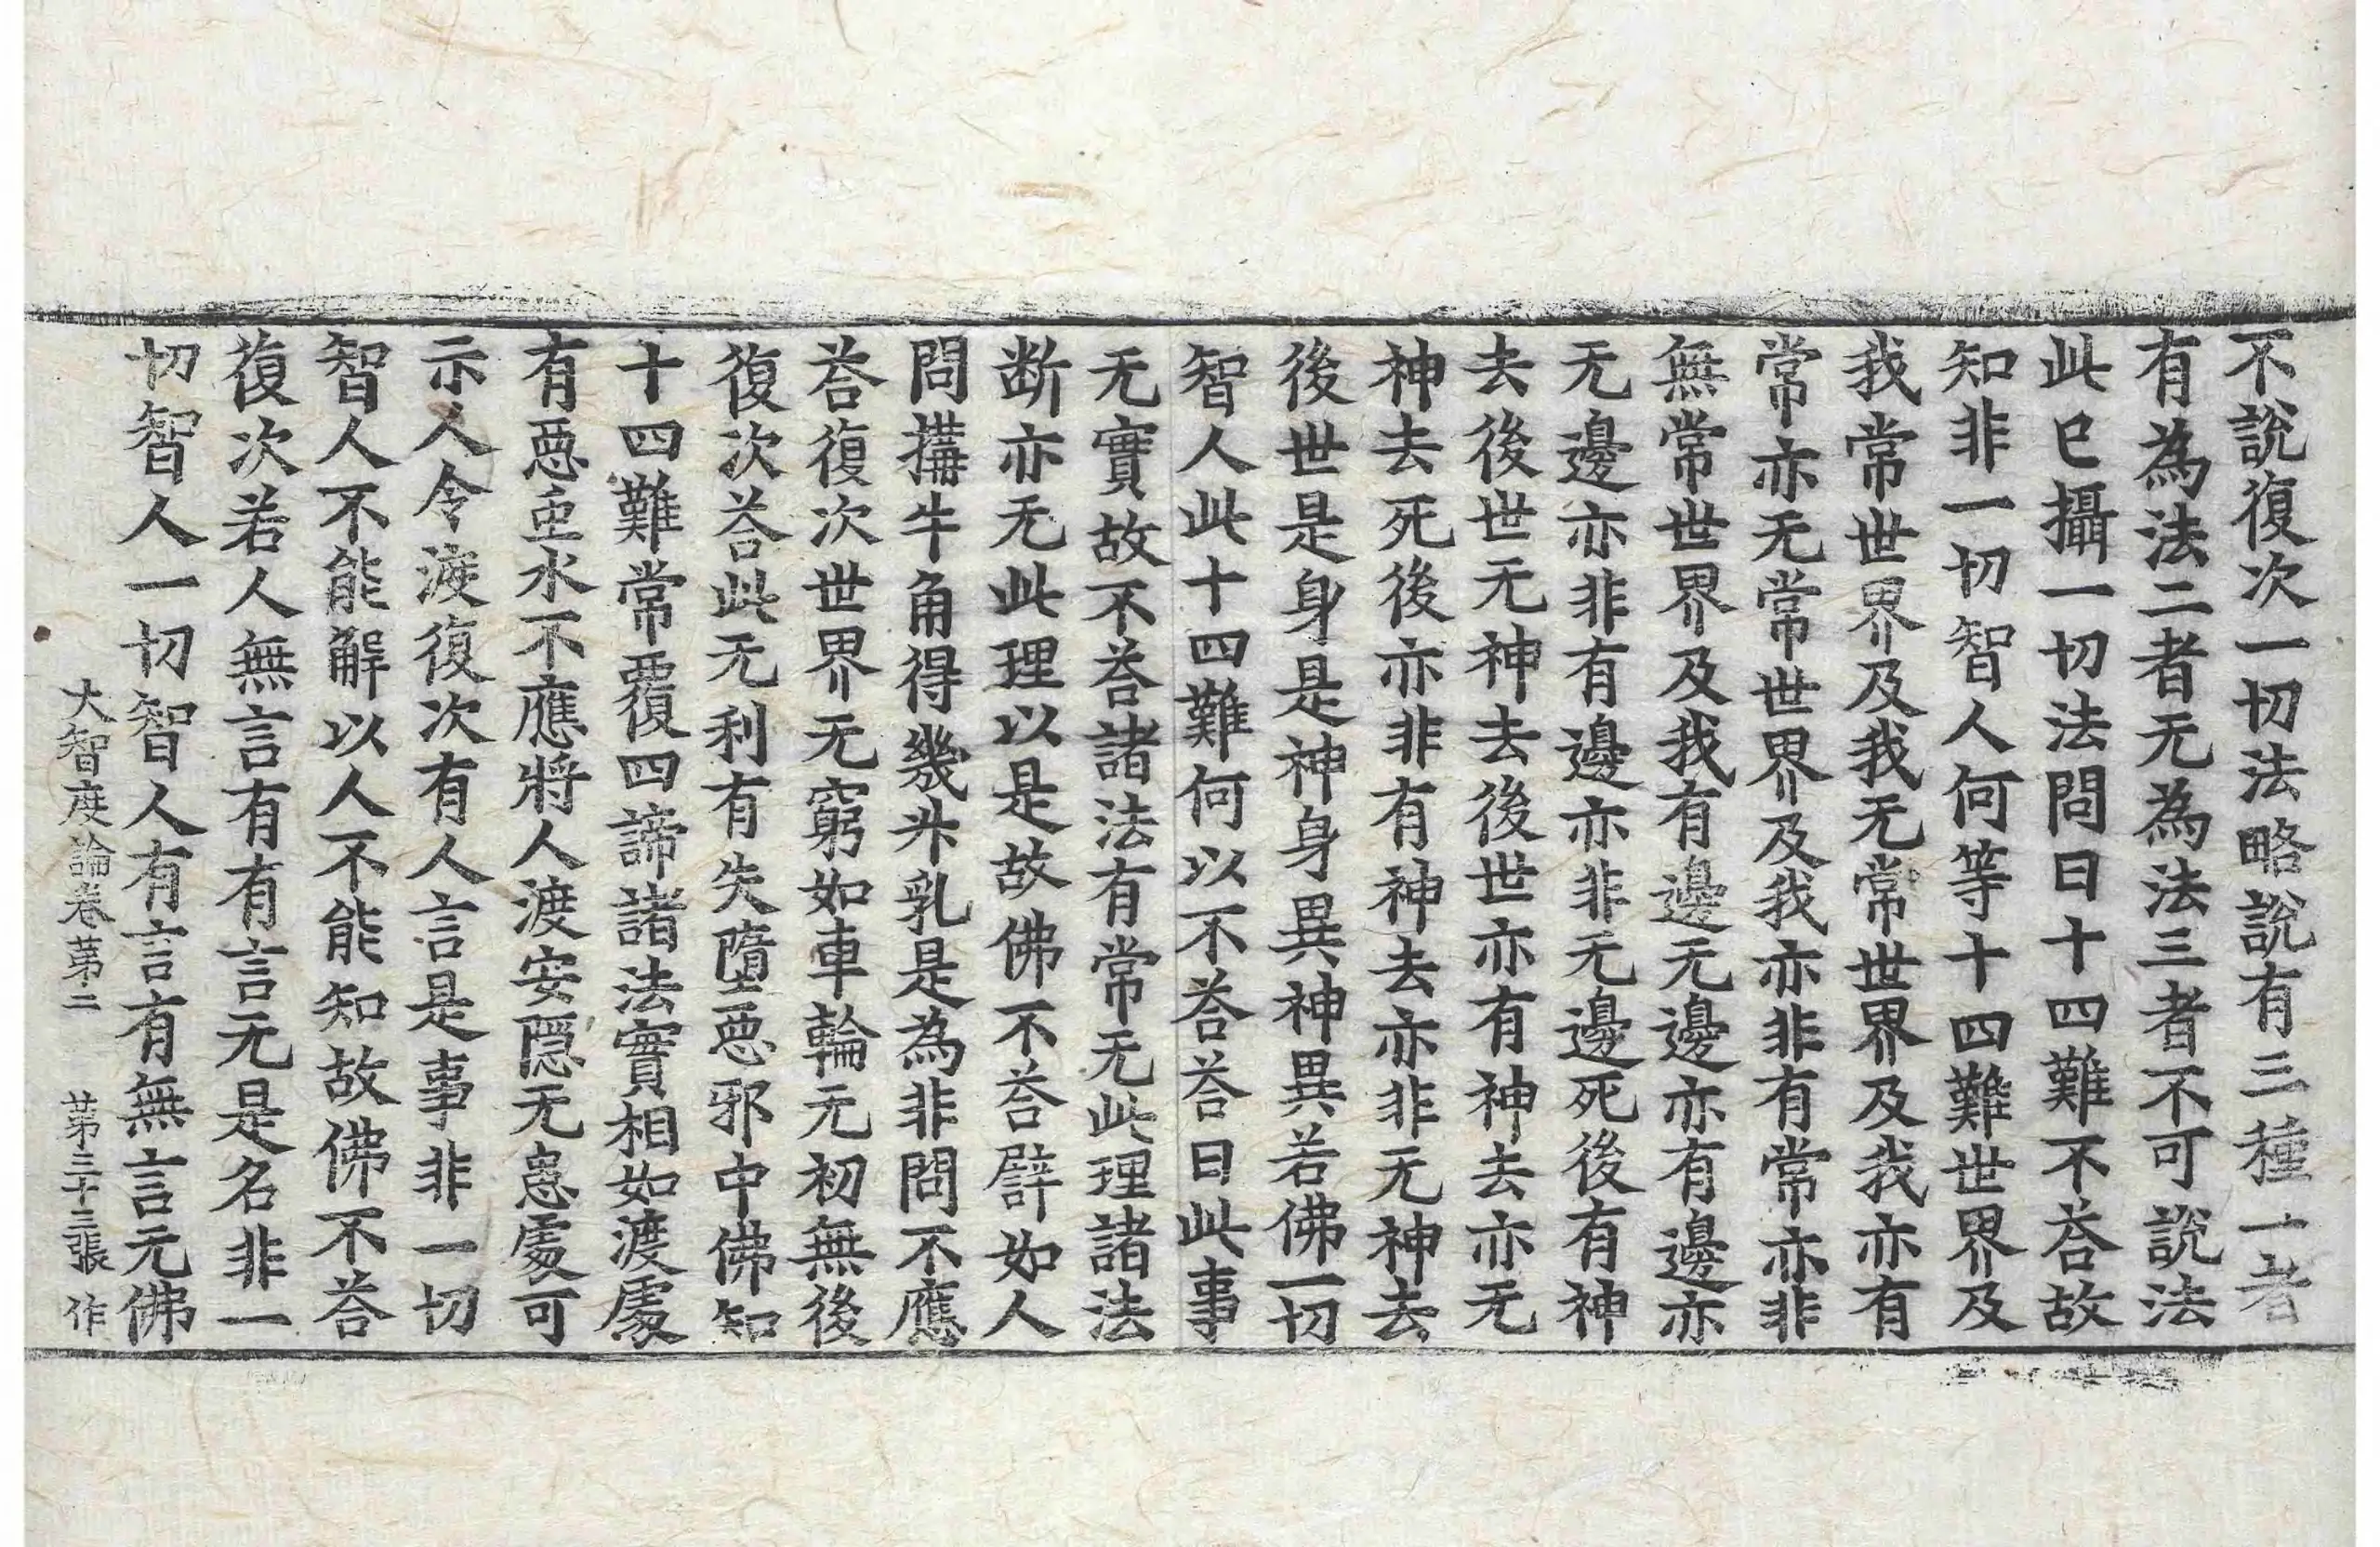 不說復次一切法略說有三種一者
有為法二者无為法三者不可說法
此已攝一切法問曰十四難不荅故
知非一切智人何等十四難世界及
我常世界及我无常世界及我亦有
常亦无常世界及我亦非有常亦非
無常世界及我有邊无邊亦有邊亦
无邊亦非有邊亦非无邊死後有神
去後世无神去後世亦有神去亦无
神去死後亦非有神去亦非无神去
後世是身是神身異神異若佛一切
智人此十四難何以不荅荅曰此事
无實故不荅諸法有常无此理諸法
断亦无此理以是故佛不荅譬如人
問搆牛角得幾升乳是為非問不應
荅復次世界无窮如車輪无初無後
復次荅此无利有失墮惡邪中佛知
十四難常覆四諦諸法實相如渡處
有惡虫水不應將人渡安隱无患處可
示人令渡復次有人言是事非一切
智人不能解以人不能知故佛不荅
復次若人無言有有言无是名非一
切智人一切智人有言有無言无佛
大智度論卷第二 第三十三張 作